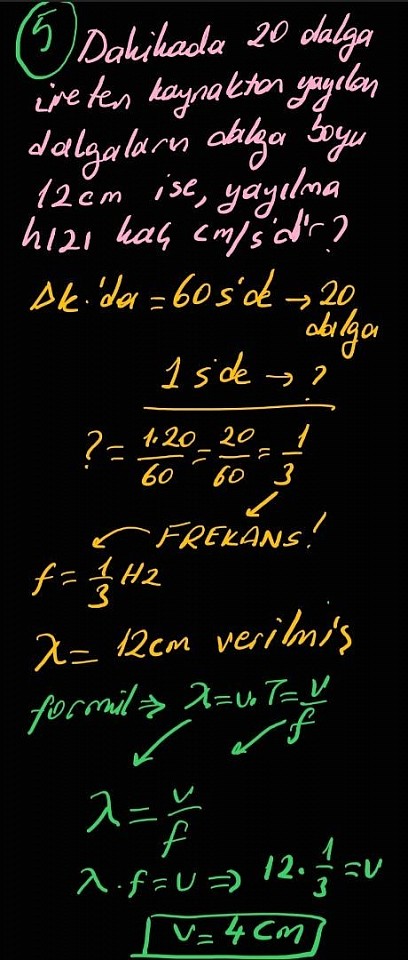 5 Dakikada 20 dalga
üreten kaynaktan yayılan
dalgaların dalga boyu
12cm ise, yayılma
hızı kaç cm/s'dir?
Dk.'da = 60 s'de → 20
dalga
1 s'de → ?
? = 1.20/60 = 20/60 = 1/3
FREKANS!
f = 1/3 Hz
λ = 12cm verilmiş
formül ⇒ λ = v.T = v/f
λ = v/f
λ.f = v ⇒ 12.1/3 = v
v = 4 cm